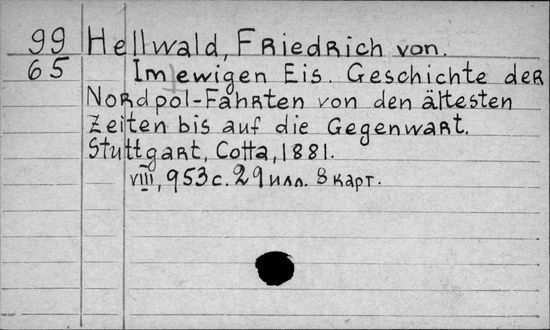 99 Hellwald, Friedrich von.
65 Im ewigen Eis. Geschichte der
Nordpol-Fahrten von den ältesten
Zeiten bis auf die Gegenwart.
Stuttgart, Cotta, 1881.
VIII, 953 с. 29 илл. 8 карт.